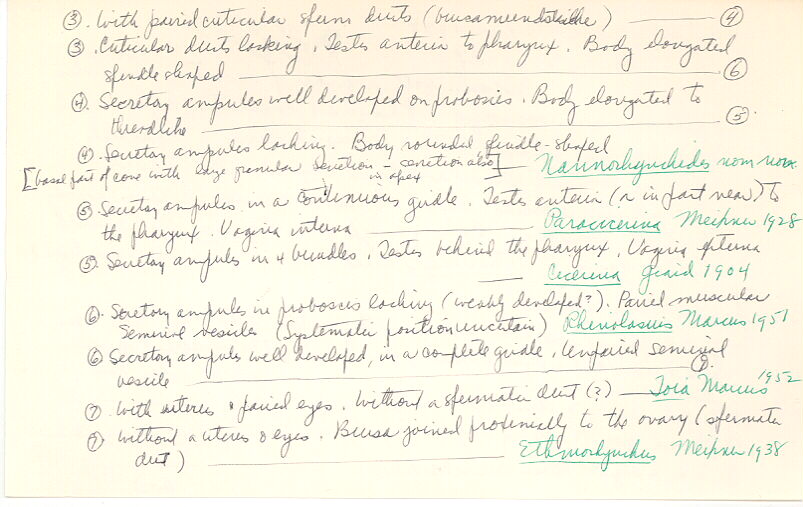 ③. With paired cuticular sperm ducts (bursamundstücke) ④
③. Cuticular ducts lacking. Testes anterior to pharynx. Body elongated
spindle shaped ⑥
④. Secretory ampules well developed on proboscis. Body elongated to
threadlike ⑤
④. Secretory ampules lacking. Body rounded spindle-shaped
[basal part of cone with large granular secretion – secretion also in apex] Nannorhynchides nom. nov.
⑤ Secretory ampules in a continuous girdle. Testes anterior (or in part near) to
the pharynx. Vagina interna Paracicerina Meixner 1928
⑤. Secretory ampules in 4 bundles. Testes behind the pharynx. Vagina externa
Cicerina Giard 1904
⑥. Secretory ampules in proboscis lacking (weakly developed?). Paired muscular
seminal vesicles (Systematic position uncertain) Rhinolasius Marcus 1951
⑥ Secretory ampules well developed, in a complete girdle. Unpaired seminal
vesicle
⑦. With uterus & paired eyes. Without a spermatic duct (?) Toia Marcus 1952
⑦. Without a uterus & eyes. Bursa joined proximally to the ovary (spermatic
duct) Ethmorhynchus Meixner 1938